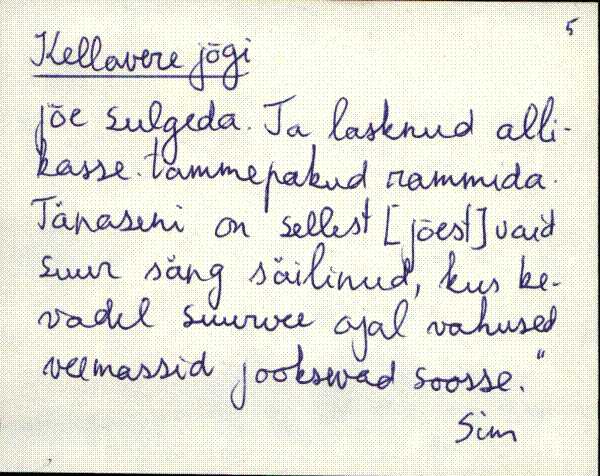 5
Kellavere jõgi
jõe sulgeda. Ta lasknud alli-
kasse tammepakud rammida.
Tänaseni on sellest [jõest] vaid
suur säng säilinud, kus ke-
vadel suurvee ajal vahused
veemassid jooksevad soosse."
Sim